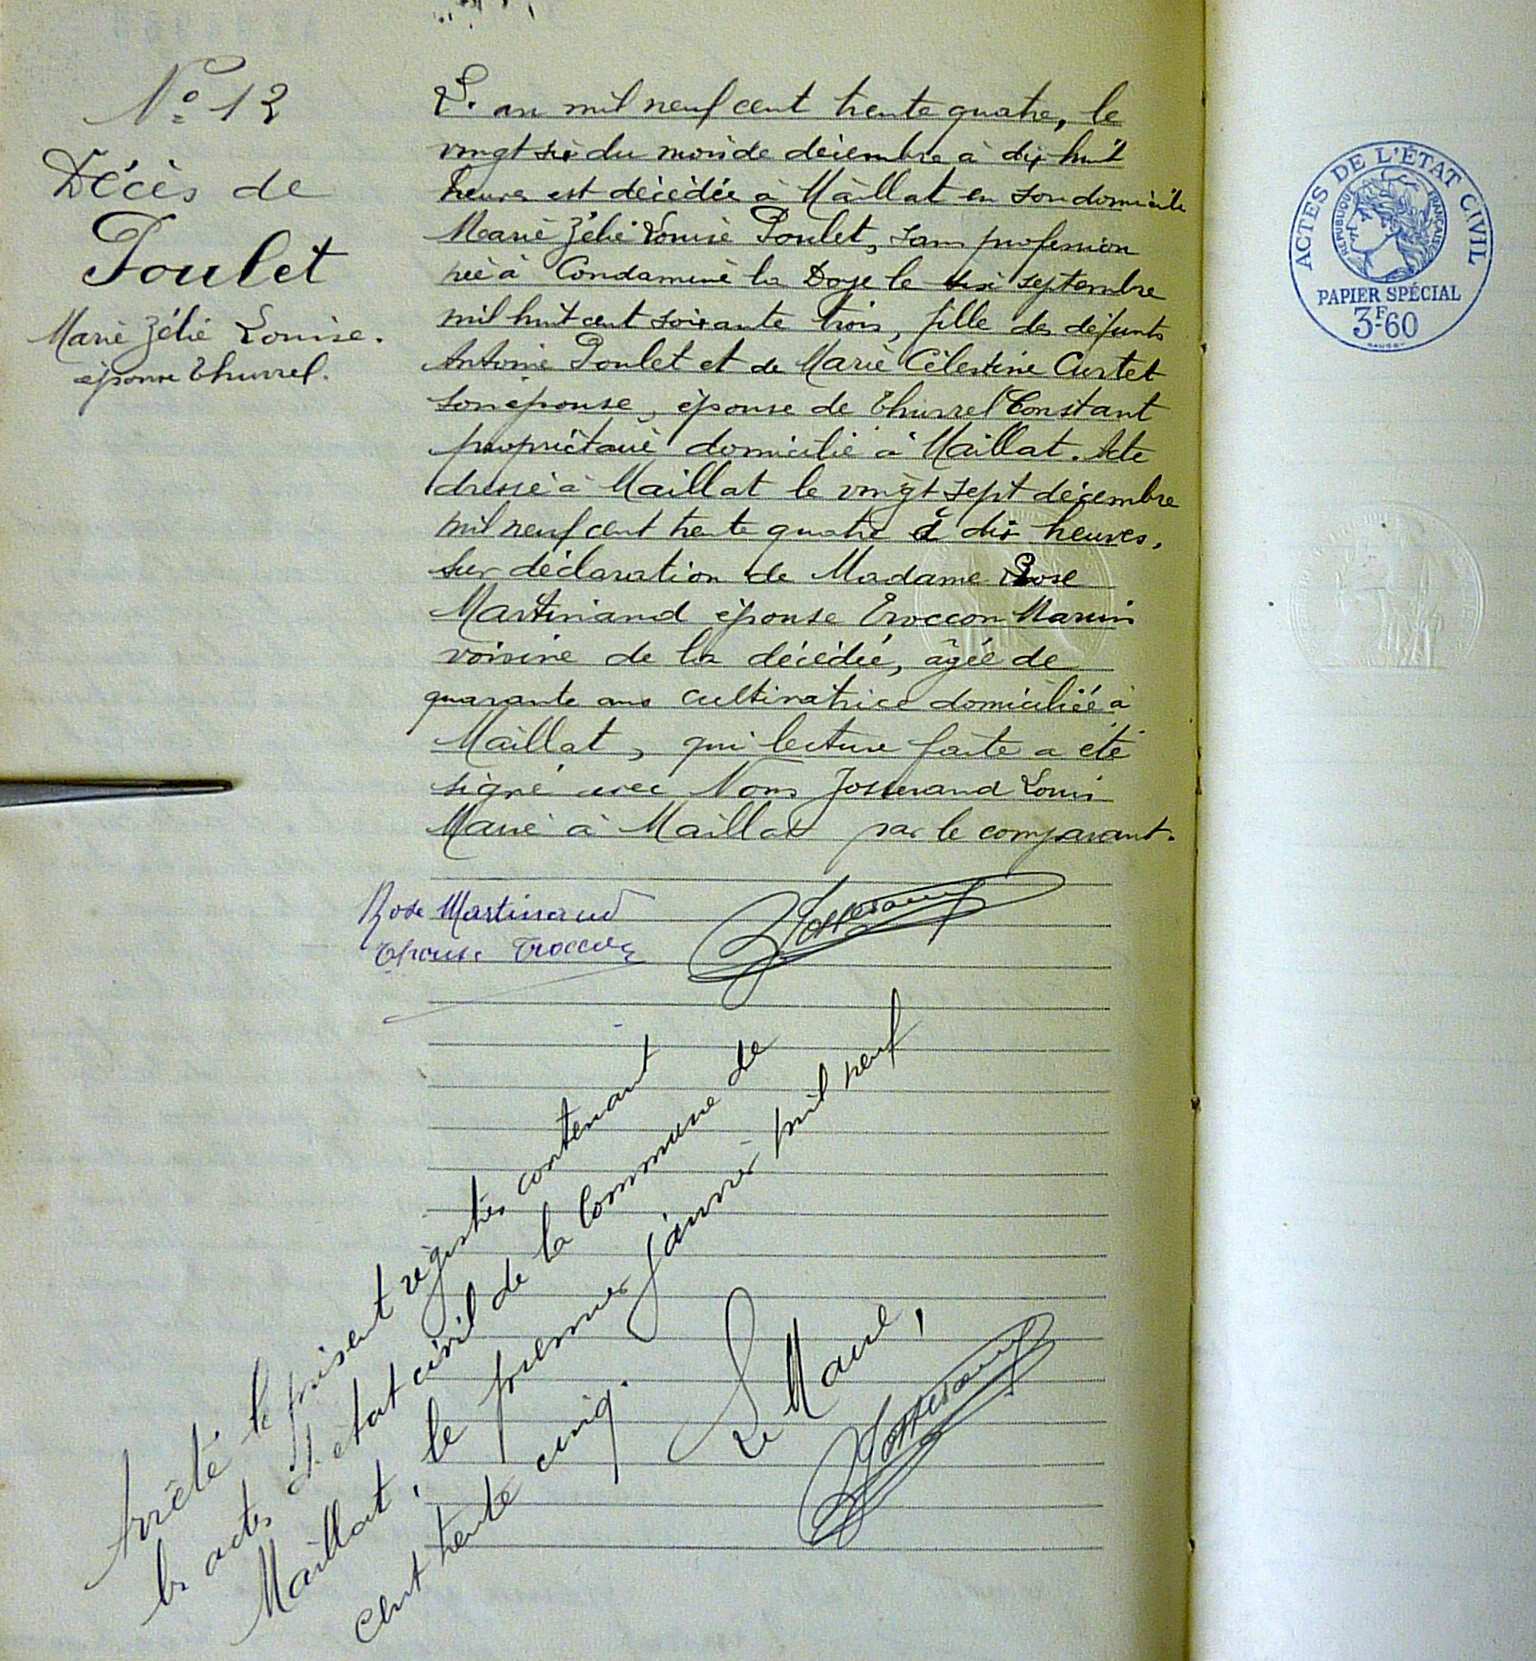 N° 12
Décès de
Poulet
Marie Zélie Louise.
épouse Thurrel.
L'an mil neuf cent trente quatre, le
vingt six du mois de décembre à dix huit
heures est décédée à Maillat en son domicile
Marie Zélie Louise Poulet, sans profession
née à Condamine la Doye le six septembre
mil huit cent soixante trois, fille des défunts
Antoine Poulet et de Marie Célestine Curtet
son épouse, épouse de Thurrel Constant
propriétaire domicilié à Maillat. Acte
dressé à Maillat le vingt sept décembre
mil neuf cent trente quatre à dix heures,
sur déclaration de Madame Rose
Martinand épouse Troccon Marius
voisine de la décédée, âgée de
quarante ans cultivatrice domiciliée à
Maillat, qui lecture faite a été
signé avec Nous Josserand Louis
Maire à Maillat par le comparant.
Rose Martinand
Epouse Troccon
Josserand
Arrêté le présent registre contenant
les actes d'état civil de la Commune de
Maillat, le premier janvier mil neuf
cent trente cinq.
Le Maire,
Josserand
ACTES DE L'ÉTAT CIVIL
RÉPUBLIQUE FRANÇAISE
PAPIER SPÉCIAL
3F-60